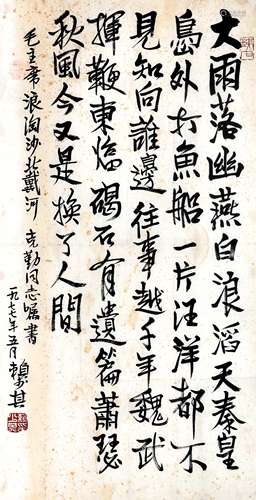 大雨落幽燕白浪滔天秦皇
島外打魚船一片汪洋都不
見知向誰邊往事越千年魏武
揮鞭東臨碣石有遺篇蕭瑟
秋風今又是換了人間
毛主席浪淘沙北戴河 克勤同志嘱書
一九七七年五月 賴少其